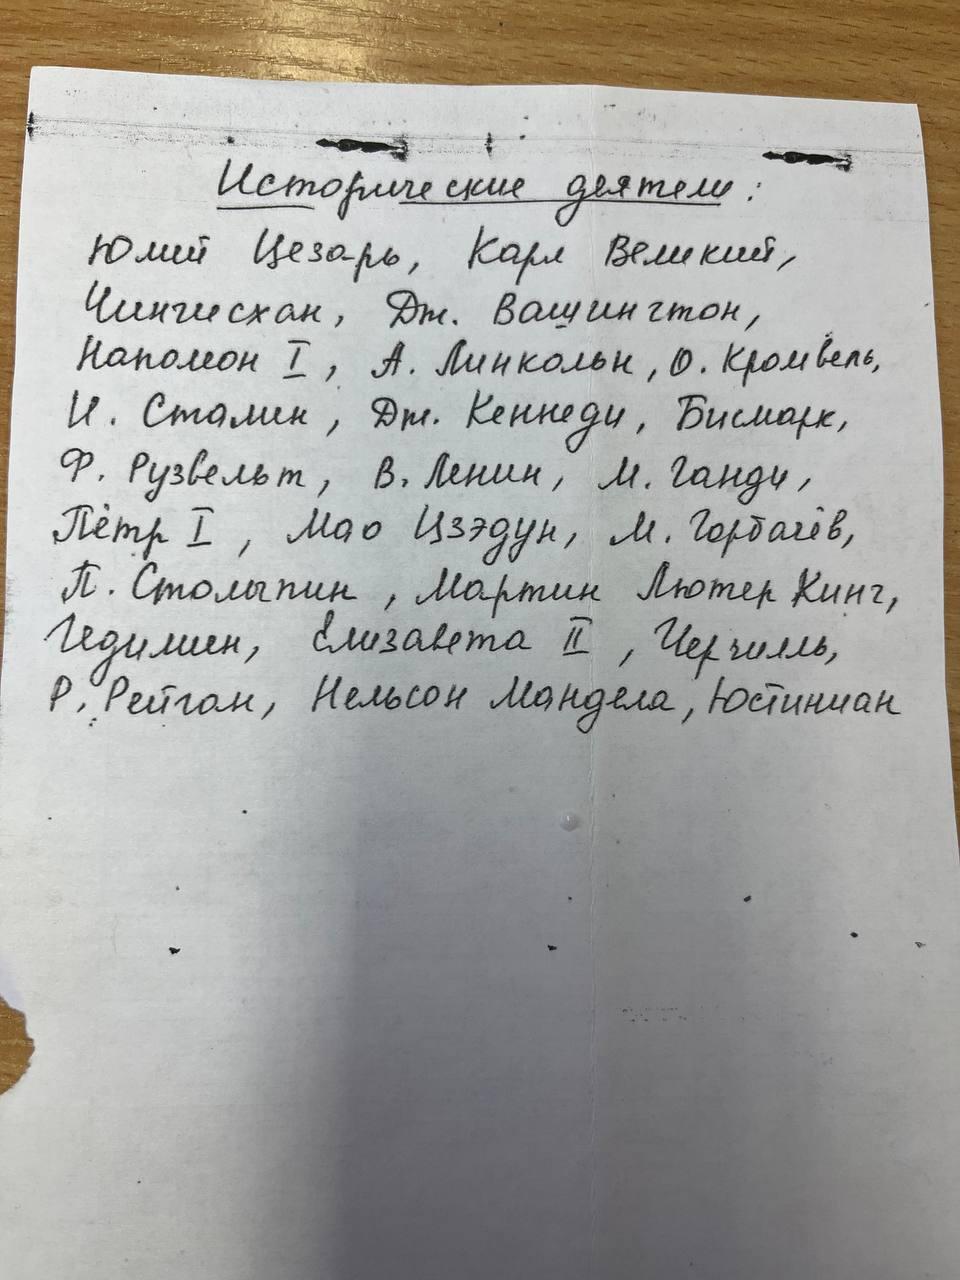 Исторические деятели:
Юлий Цезарь, Карл Великий,
Чингисхан, Дж. Вашингтон,
Наполеон I, А. Линкольн, О. Кромвель,
И. Сталин, Дж. Кеннеди, Бисмарк,
Ф. Рузвельт, В. Ленин, М. Ганди,
Пётр I, Мао Цзэдун, М. Горбачёв,
П. Столыпин, Мартин Лютер Кинг,
Гедимин, Елизавета II, Черчилль,
Р. Рейган, Нельсон Мандела, Юстиниан